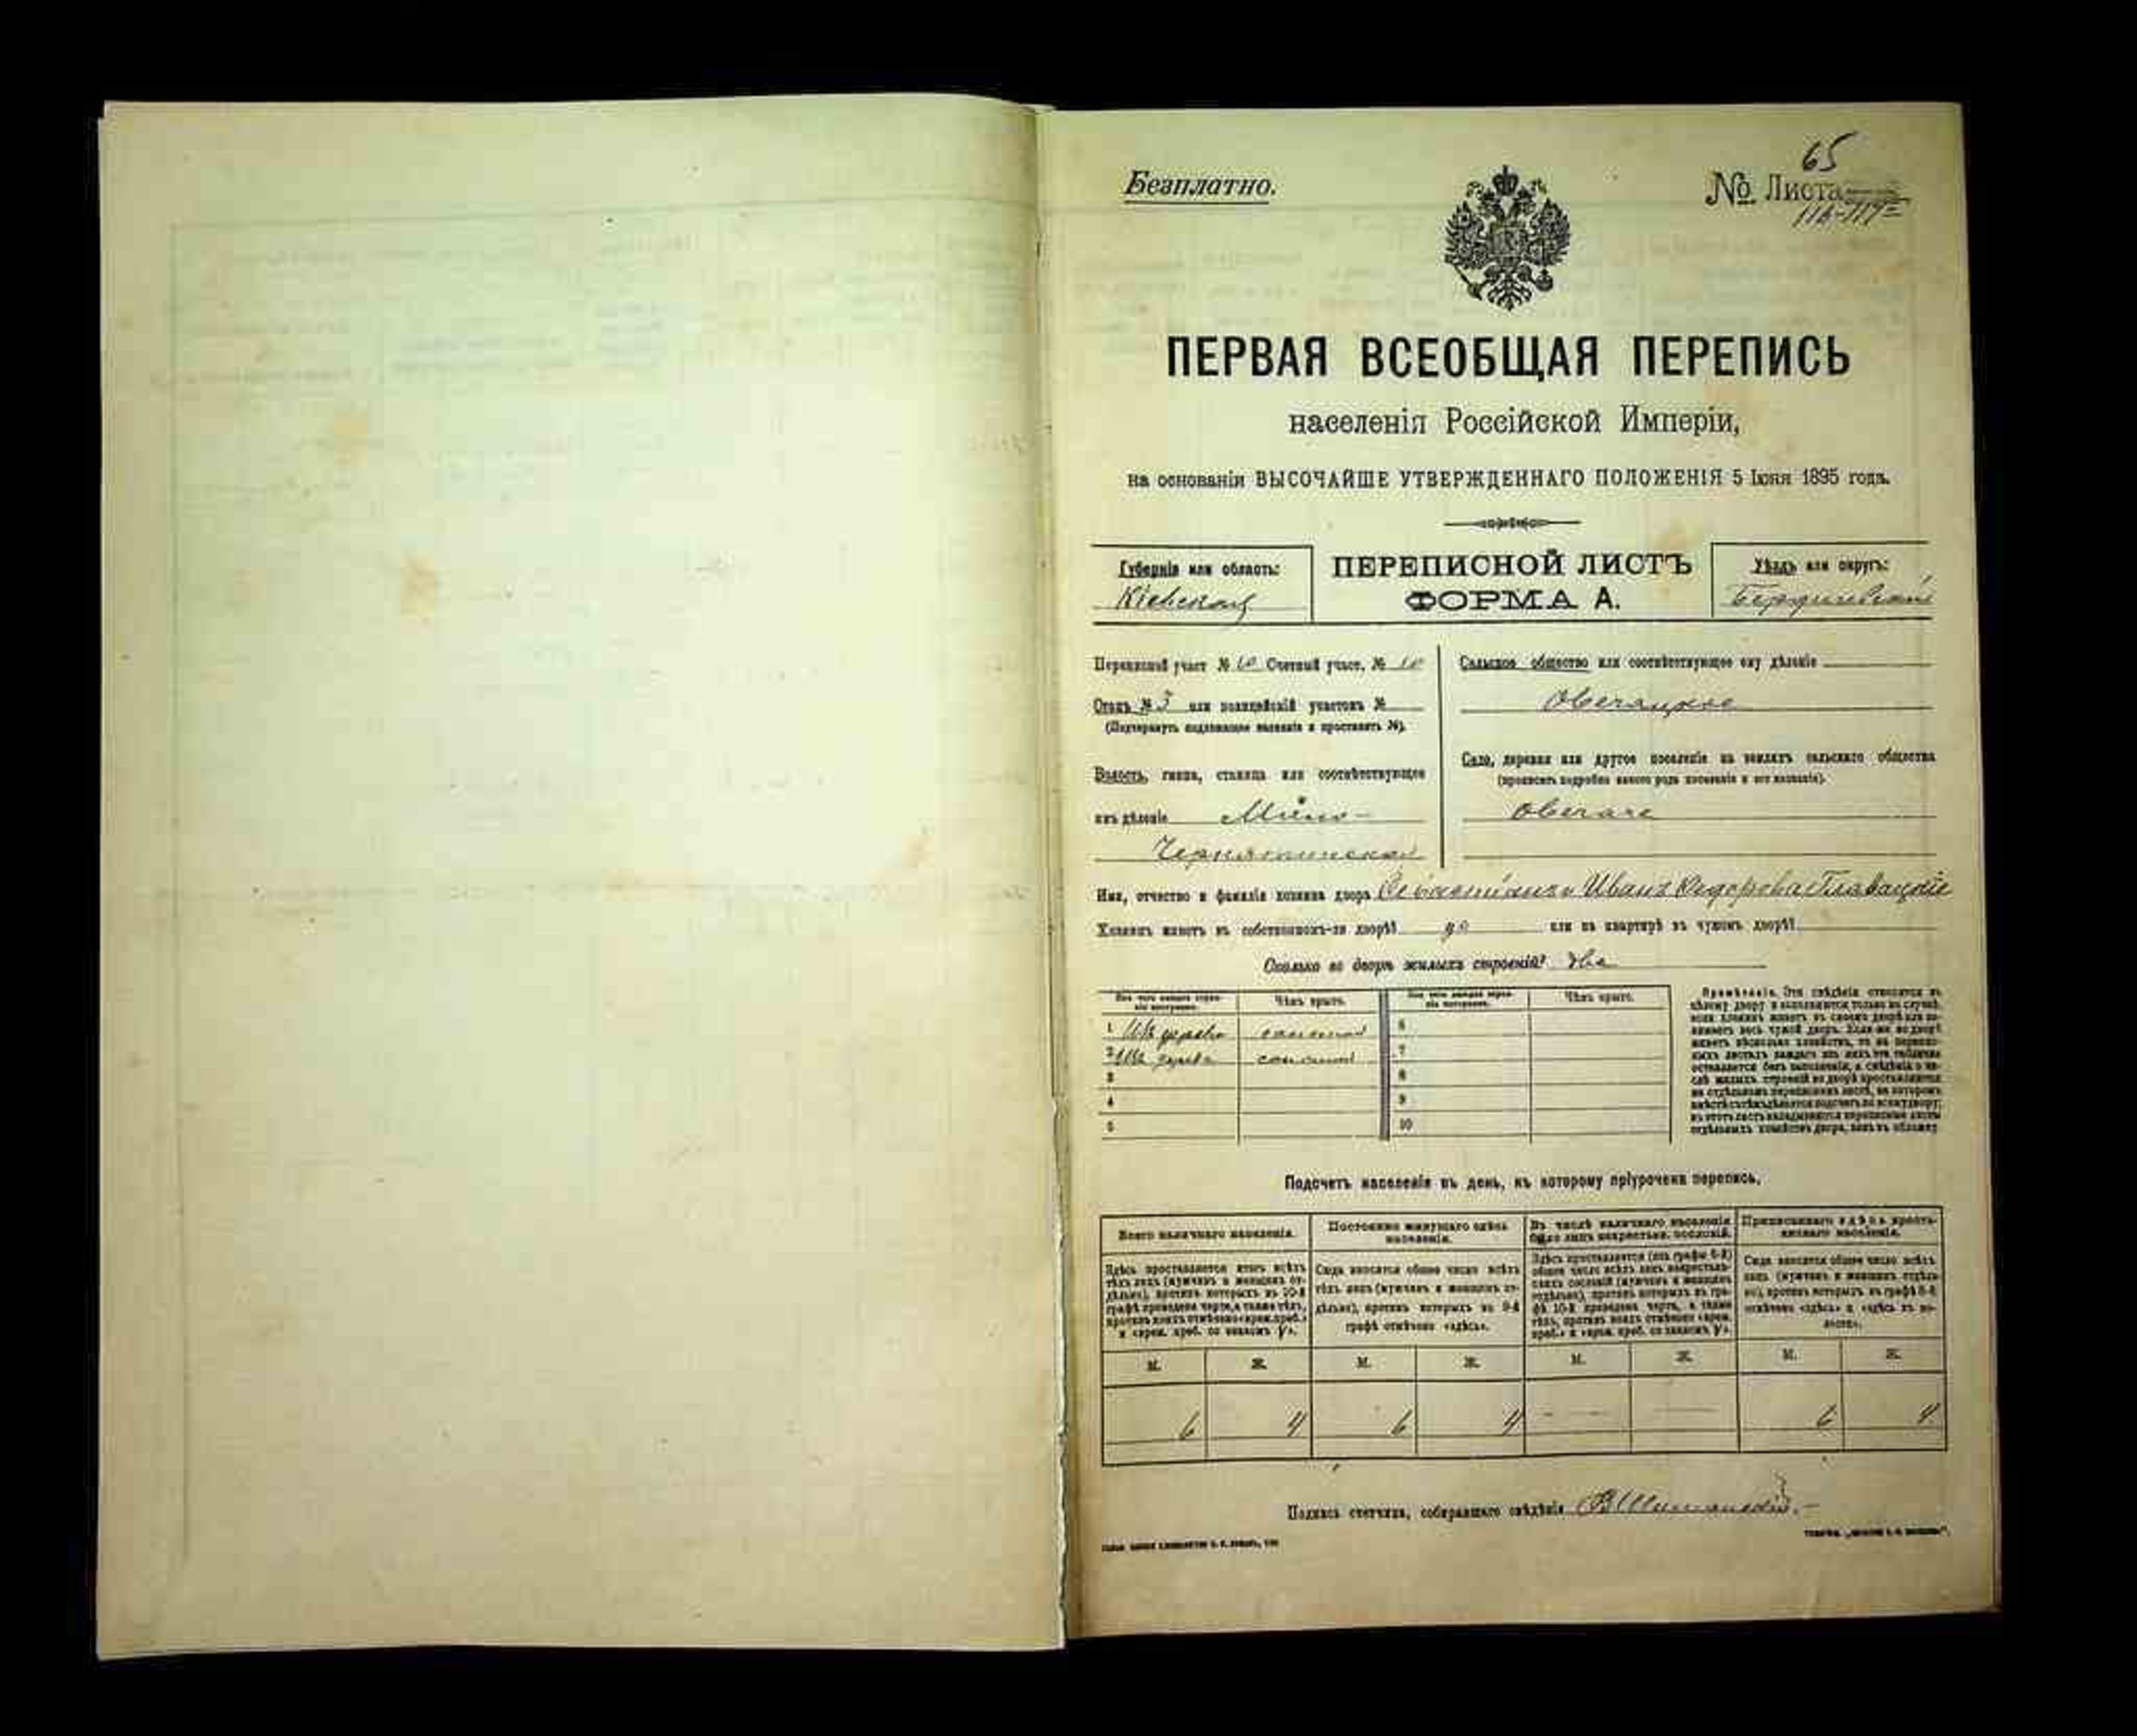 65
Безплатно.
№ Листа
116-117
ПЕРВАЯ ВСЕОБЩАЯ ПЕРЕПИСЬ
населенія Россійской Имперіи,
на основаніи ВЫСОЧАЙШЕ УТВЕРЖДЕННАГО ПОЛОЖЕНІЯ 5 Іюня 1895 года.
Губернія или область:
Кіевская
ПЕРЕПИСНОЙ ЛИСТЪ
ФОРМА А.
Уѣздъ или округъ:
Бердичевскій
Переписной участ. № 10 Счетный участ. № 10
Станъ № 3 или полицейскій участокъ №
(Подчеркнуть надлежащее названіе и проставить №).
Волость, гмина, станица или соотвѣтствующее
имъ дѣленіе
Чернятинская
Сельское общество или соотвѣтствующее ему дѣленіе
Овечацкое
Село, деревня или другое поселеніе на земляхъ сельскаго общества
(прописать подробно какого рода поселеніе и его названіе).
Овечаче
Имя, отчество и фамилія хозяина двора Иванъ
Хозяинъ живетъ въ собственномъ-ли дворѣ? да или на квартирѣ въ чужомъ дворѣ?
Сколько во дворѣ жилыхъ строеній? два
Изъ чего каждое строеніе построено. Чѣмъ крыто. Изъ чего каждое строеніе построено. Чѣмъ крыто.
1 Изъ дерева соломой 6
2 Изъ дерева соломой 7
3 8
4 9
5 10
Примѣчаніе. Эти свѣдѣнія относятся къ
цѣлому двору и заполняются только въ случаѣ,
если хозяинъ живетъ въ своемъ дворѣ или за-
нимаетъ весь чужой дворъ. Если же во дворѣ
живетъ нѣсколько хозяйствъ, то на перепис-
ныхъ листахъ каждаго изъ нихъ эта табличка
оставляется безъ заполненія, а свѣдѣнія о чи-
слѣ жилыхъ строеній во дворѣ проставляются
на отдѣльномъ переписномъ листѣ, на которомъ
вмѣстѣ съ тѣмъ дѣлается подсчетъ по всему двору;
въ этотъ листъ вкладываются переписные листы
отдѣльныхъ хозяйствъ двора, какъ въ обложку.
Подсчетъ населенія въ день, къ которому пріурочена перепись.
Всего наличнаго населенія.
Здѣсь проставляется итогъ всѣхъ
тѣхъ лицъ (мужчинъ и женщинъ от-
дѣльно), противъ которыхъ въ 10-й
графѣ проведена черта, а также тѣхъ,
противъ коихъ отмѣчено «врем. преб.»
и «врем. преб. со знакомъ V».
Постоянно живущаго здѣсь
населенія.
Сюда вносится общее число всѣхъ
тѣхъ лицъ (мужчинъ и женщинъ от-
дѣльно), противъ которыхъ въ 9-й
графѣ отмѣчено «здѣсь».
Въ числѣ наличнаго населенія
было лицъ некрестьян. сословій.
Здѣсь проставляется (изъ графы 6-й)
общее число всѣхъ лицъ некрестьян-
скихъ сословій (мужчинъ и женщинъ
отдѣльно), противъ которыхъ въ гра-
фѣ 10-й проведена черта, а также
тѣхъ, противъ коихъ отмѣчено «врем.
преб.» и «врем. преб. со знакомъ V».
Приписаннаго здѣсь кресть-
янскаго населенія.
Сюда вносится общее число всѣхъ
лицъ (мужчинъ и женщинъ отдѣль-
но), противъ которыхъ въ графѣ 8-й
отмѣчено «здѣсь» и «здѣсь въ во-
лости».
М. Ж. М. Ж. М. Ж. М. Ж.
6 4 6 4 — — 6 4
Подпись счетчика, собиравшаго свѣдѣнія